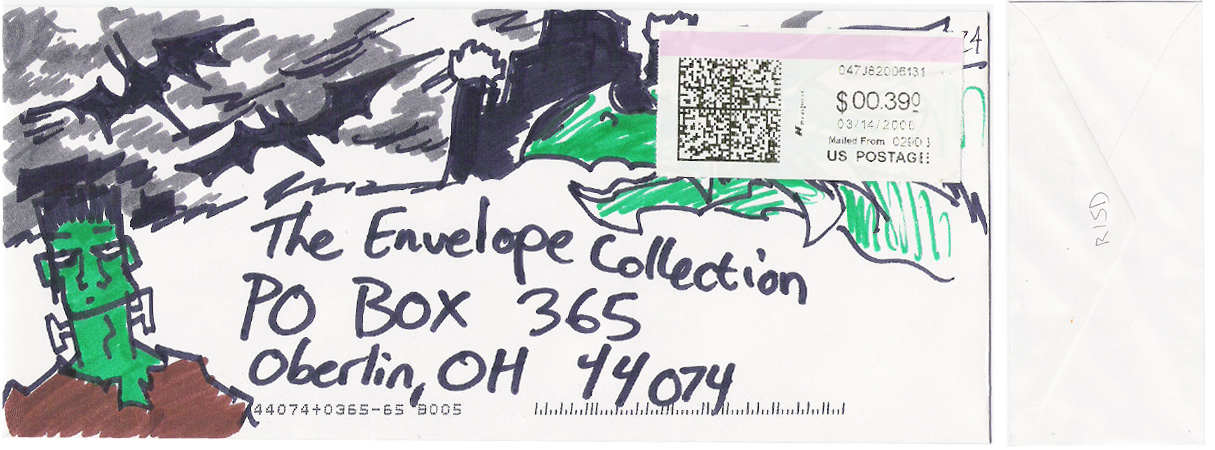 24
047J82006131
$00.390
03/14/2006
Mailed From 02903
US POSTAGE
The Envelope Collection
PO BOX 365
Oberlin, OH 44074
44074+0365-65 B005
RISD